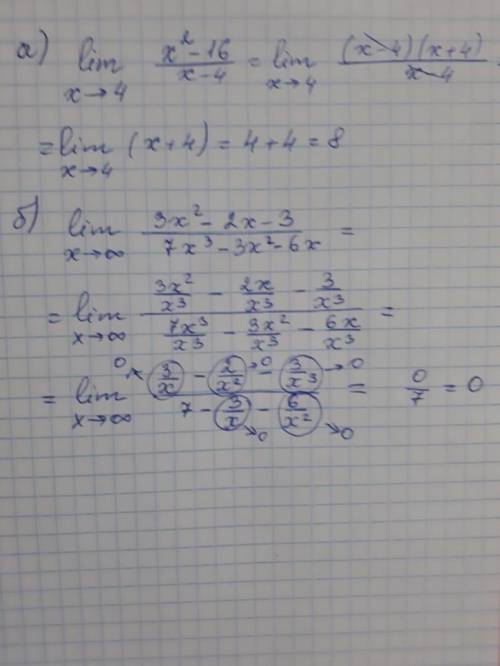 а) lim x→4 (x² - 16)/(x - 4) = lim x→4 ((x - 4)(x + 4))/(x - 4)
= lim x→4 (x + 4) = 4 + 4 = 8
б) lim x→∞ (3x² - 2x - 3)/(7x³ - 3x² - 6x) =
= lim x→∞ (3x²/x³ - 2x/x³ - 3/x³)/(7x³/x³ - 3x²/x³ - 6x/x³) =
= lim x→∞ (3/x →0 - 2/x² →0 - 3/x³ →0)/(7 - 3/x →0 - 6/x² →0) = 0/7 = 0